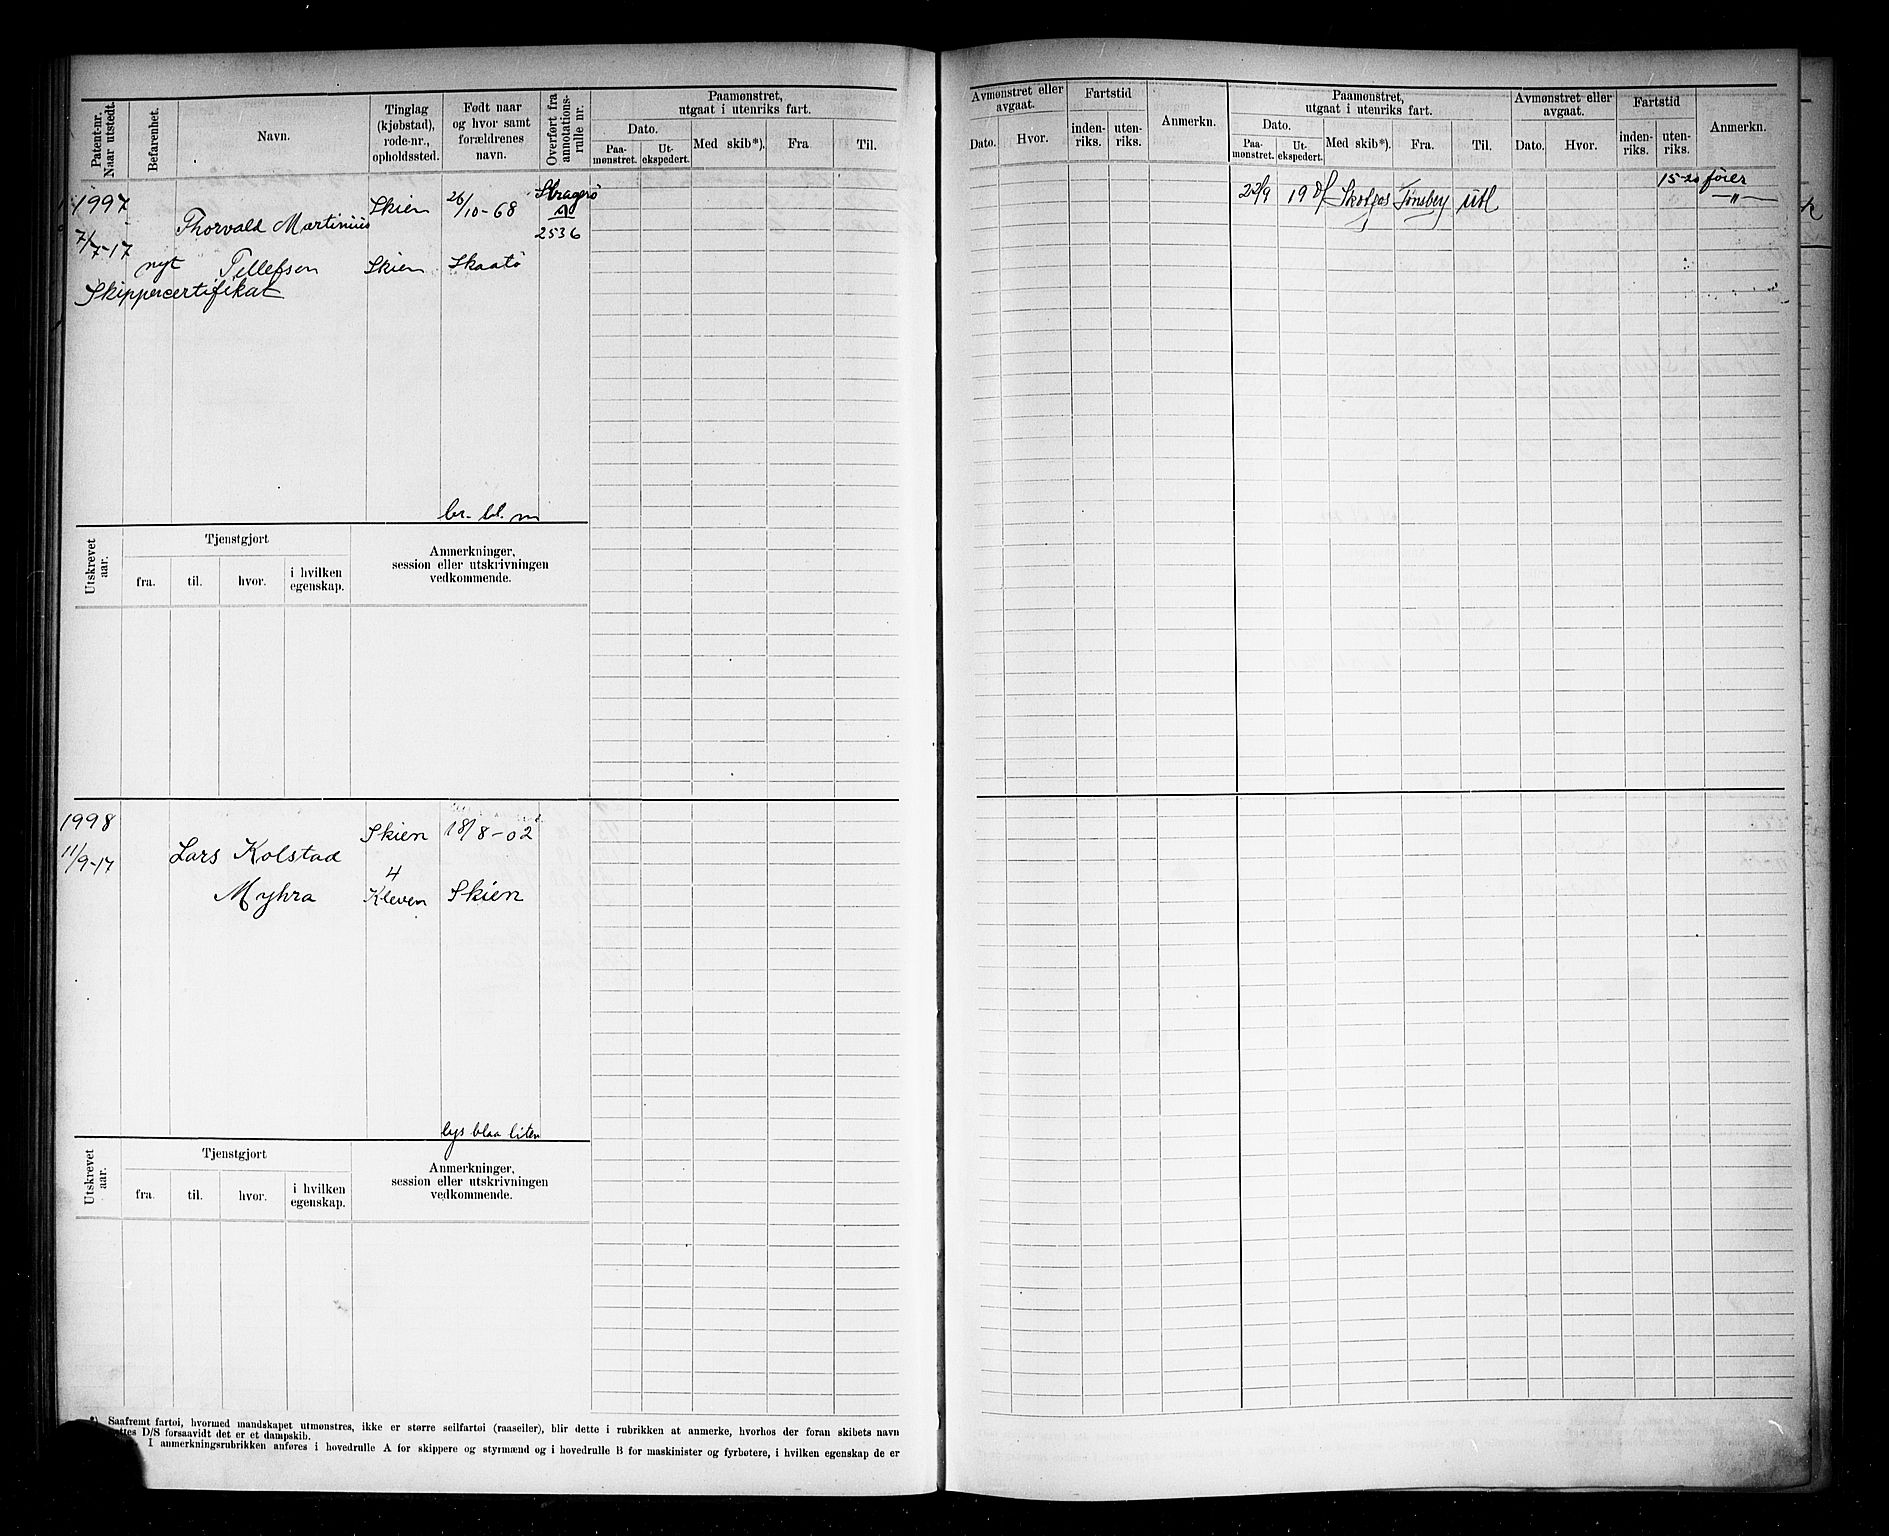 Patent-nr. Naar utstedt.
Befarenhet.
Navn.
Tinglag (kjøbstad), rode-nr., opholdssted.
Født naar og hvor samt forældrenes navn.
Overført fra annotations-rulle nr.
Paamønstret, utgaat i utenriks fart.
Dato.
Paa-mønstret.
Ut-ekspedert.
Med skib*).
Fra.
Til.
1997
7/7-17
nyt
Skippercertifikat
Thorvald Martinius
Tellefsen
Skien
Skien
26/10-68
Skaatø
2536
br. bl. m
Utskrevet aar.
Tjenstgjort
fra.
til.
hvor.
i hvilken egenskap.
Anmerkninger,
session eller utskrivningen
vedkommende.
1998
11/9-17
Lars Kolstad
Myhra
Skien
4
Kleven
18/8-02
Skien
lys blaa liten
Utskrevet aar.
Tjenstgjort
fra.
til.
hvor.
i hvilken egenskap.
Anmerkninger,
session eller utskrivningen
vedkommende.
*) Saafremt fartøi, hvormed mandskapet utmønstres, ikke er større seilfartøi (raaseiler), blir dette i rubrikken at anmerke, hvorhos der foran skibets navn
D/S forsaavidt det er et dampskib.
I anmerkningsrubrikken anføres i hovedrulle A for skippere og styrmænd og i hovedrulle B for maskinister og fyrbøtere, i hvilken egenskap de er
Avmønstret eller avgaat.
Dato.
Hvor.
Fartstid
inden-riks.
uten-riks.
Anmerkn.
Paamønstret, utgaat i utenriks fart.
Dato.
Paa-mønstret.
Ut-ekspedert.
Med skib*).
Fra.
Til.
Avmønstret eller avgaat.
Dato.
Hvor.
Fartstid
inden-riks.
uten-riks.
Anmerkn.
15-20 fører
22/9 19 Tønsberg utl "